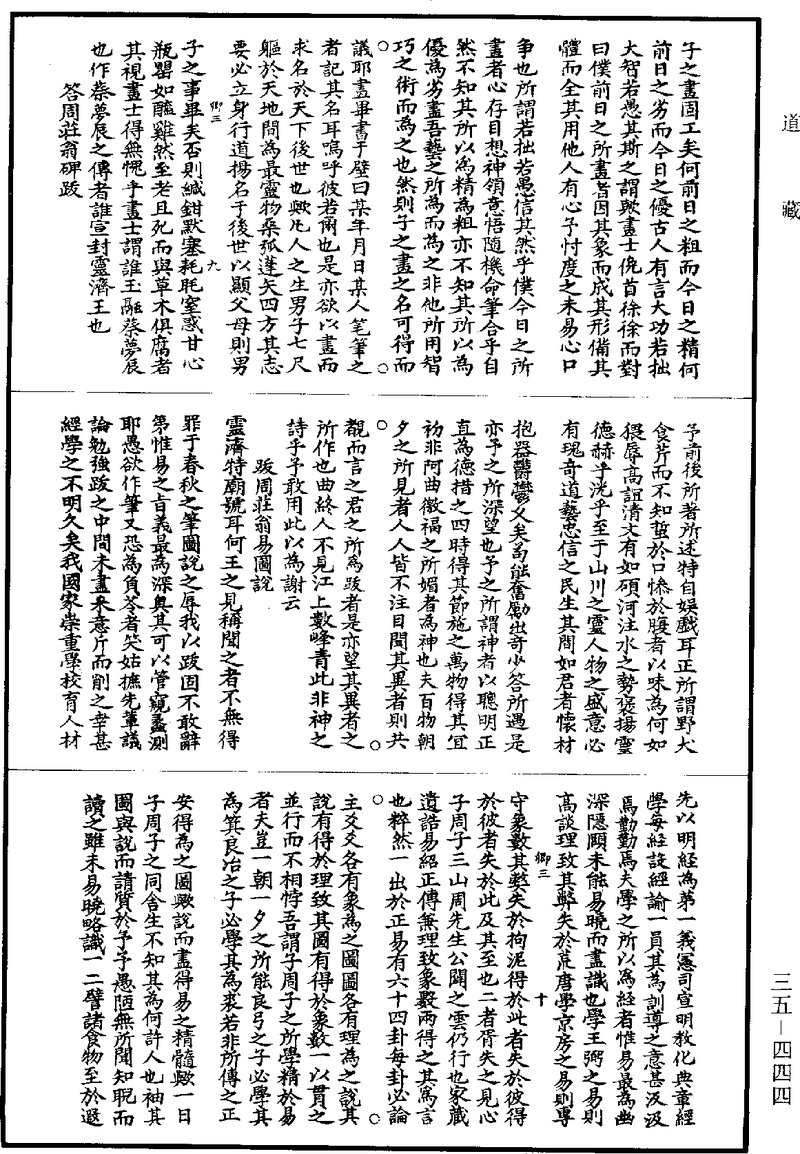 道藏
子之畫固工矣何前日之粗而今日之精何
前日之劣而今日之優古人有言大功若拙
大智若愚其斯之謂歟畫士俛首徐徐而對
曰僕前日之所畫者因其象而成其形備其
體而全其用他人有心予忖度之未易心口
爭也所謂若拙若愚信其然乎僕今日之所
畫者心存目想神領意悟隨機命筆合乎自
然不知其所以為精為粗亦不知其所以為
優為劣盡吾藝之所為而為之非他所用智
巧之術而為之也然則子之畫之名可得而
議耶畫畢書于壁曰某年月日某人笔筆之
者記其名耳嗚呼彼若爾也是亦欲以畫而
求名於天下後世也歟凡人之生男子七尺
軀於天地間為最靈物桑弧蓬矢四方其志
要必立身行道揚名于後世以顯父母則男
鄉三
九
子之事畢矣否則緘鉗默塞耗眊窒惑甘心
瓶罌如醯雞然至老且死而與草木俱腐者
其視畫士得無愧乎畫士謂誰王融蔡夢辰
也作蔡夢辰之傳者誰宣封靈濟王也
答周莊翁碑跋
予前後所著所述特自娛戲耳正所謂野犬
食芹而不知蜇於口慘於腹者以味為何如
猥辱高誼清文有如碩河注水之勢褒揚靈
德赫乎洸乎至于山川之靈人物之盛意必
有瑰奇道藝忠信之民生其間如君者懷材
抱器鬱鬱久矣苟能奮勵出奇少答所遇是
亦予之所深望也予之所謂神者以聰明正
直為德措之四時得其節施之萬物得其宜
初非阿曲徽福之所媚者為神也夫百物朝
夕之所見者人人皆不注目聞其異者則共
觀而言之君之所為跋者是亦望其異者之
所作也曲終人不見江上數峰青此非神之
詩乎予敢用此以為謝云
跋周莊翁易圖說
靈濟特廟號耳何王之見稱聞之者不無得
罪于春秋之筆圖說之辱我以跋固不敢辭
第惟易之旨義最為深奧其可以管窺蠡測
耶愚欲作筆又恐為負苓者笑姑摭先輩議
論勉強跋之中間未盡來意斤而削之幸甚
經學之不明久矣我國家崇重學校育人材
先以明經為第一義憲司宣明教化典章經
學每經設經諭一員其為訓導之意甚汲汲
焉勤勤焉夫學之所以為經者惟易最為幽
深隱頤未能易曉而盡識也學王弼之易則
高談理致其弊失於荒唐學京房之易則專
鄉三
十
守象數其弊失於拘泥得於此者失於彼得
於彼者失於此及其至也二者胥失之見心
子周子三山周先生公闢之雲仍行也家藏
遺誥易紹正傳無理致象數兩得之其為言
也粹然一出於正易有六十四卦每卦必論
主爻爻各有象為之圖圖各有理為之說其
說有得於理致其圖有得於象數一以貫之
並行而不相悖吾謂子周子之所學精於易
者夫豈一朝一夕之所能良弓之子必學其
為箕良冶之子必學其為裘若非所傳之正
安得為之圖歟說而盡得易之精髓歟一日
子周子之同舍生不知其為何許人也袖其
圖與說而請質於予予愚陋無所聞知覩而
讀之雖未易曉略識一二譬諸食物至於遐
三五－四四四